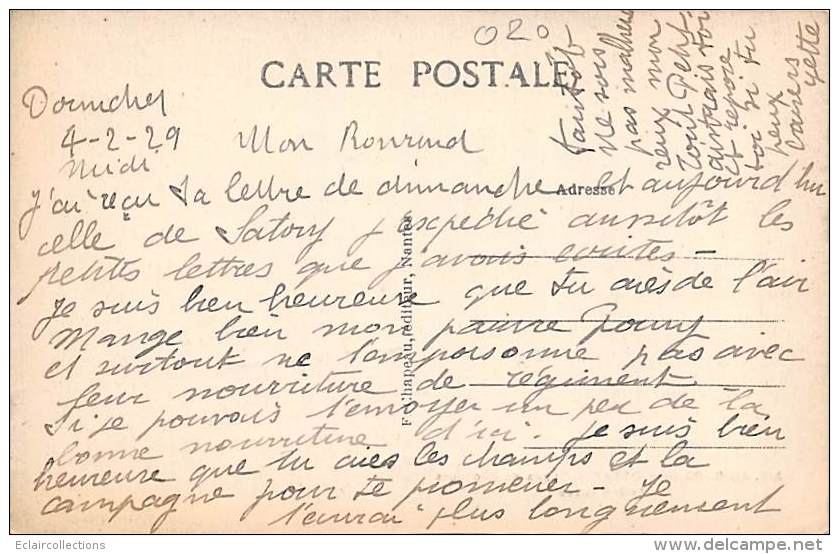 020
CARTE POSTALE
4-2-29
Midi
Mon
J'ai reçu ta lettre de dimanche et aujourd'hui
Adresse
celle de Satory j'expédie aussitôt les
petites lettres que j'avais écrites -
Je suis bien heureuse que tu aies de l'air
Mange bien mon pauvre
et surtout ne t'empoisonne pas avec
leur nourriture de régiment
Si je pouvais t'envoyer un peu de la
bonne nourriture d'ici. Je suis bien
heureuse que tu aies les champs et la
campagne pour te promener - Je
t'écrirai plus longuement
Tantôt
Ne sois
pas malheu
reux mon
Tout Petit
distrais toi
et repose
toi si tu
peux
F. Chapeau, éditeur, Nantes
Eclaircollections
www.delcampe.net